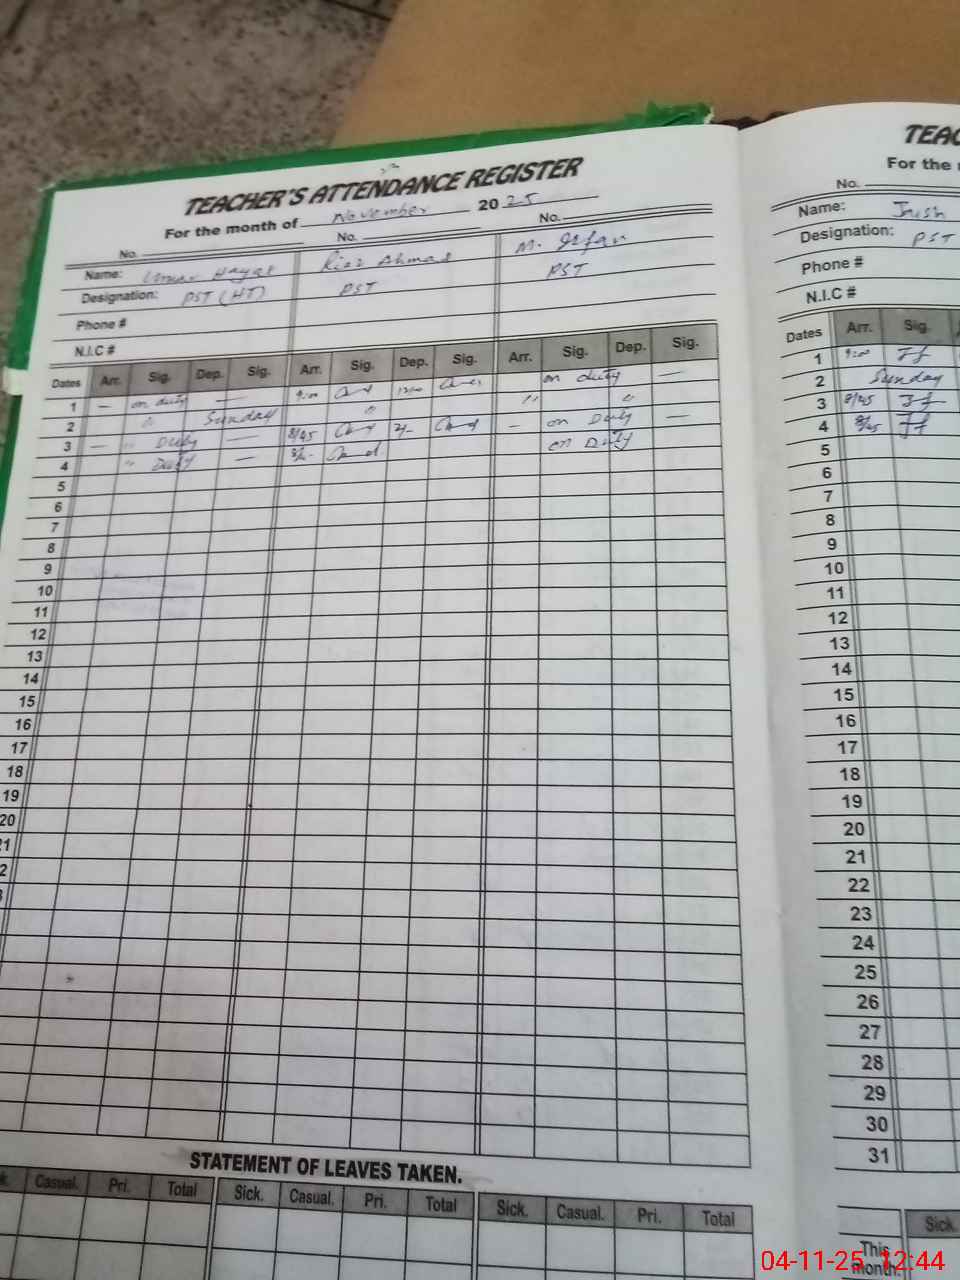 TEACHER'S ATTENDANCE REGISTER
For the month of November 2025
No. No. No.
Name: Umar Hayat Riaz Ahmad M. Irfan
Designation: PST (HT) PST PST
Phone #
N.I.C #
Dates Arr. Sig. Dep. Sig. Arr. Sig. Dep. Sig. Arr. Sig. Dep. Sig.
1 — on duty — 9:00 12:00 on duty —
2 " Sunday " " "
3 — " Duty — 8/45 2/- – on Duty —
4 " Duty — on Duty
5
6
7
8
9
10
11
12
13
14
15
16
17
18
19
20
21
2
3
STATEMENT OF LEAVES TAKEN.
k. Casual. Pri. Total Sick. Casual. Pri. Total Sick. Casual. Pri. Total
TEAC
For the
No.
Name:
Designation: PST
Phone #
N.I.C #
Dates Arr. Sig.
1 9:00
2 Sunday
3 8/45
4 8/45
5
6
7
8
9
10
11
12
13
14
15
16
17
18
19
20
21
22
23
24
25
26
27
28
29
30
31
Sick.
This
month.
04-11-25 12:44